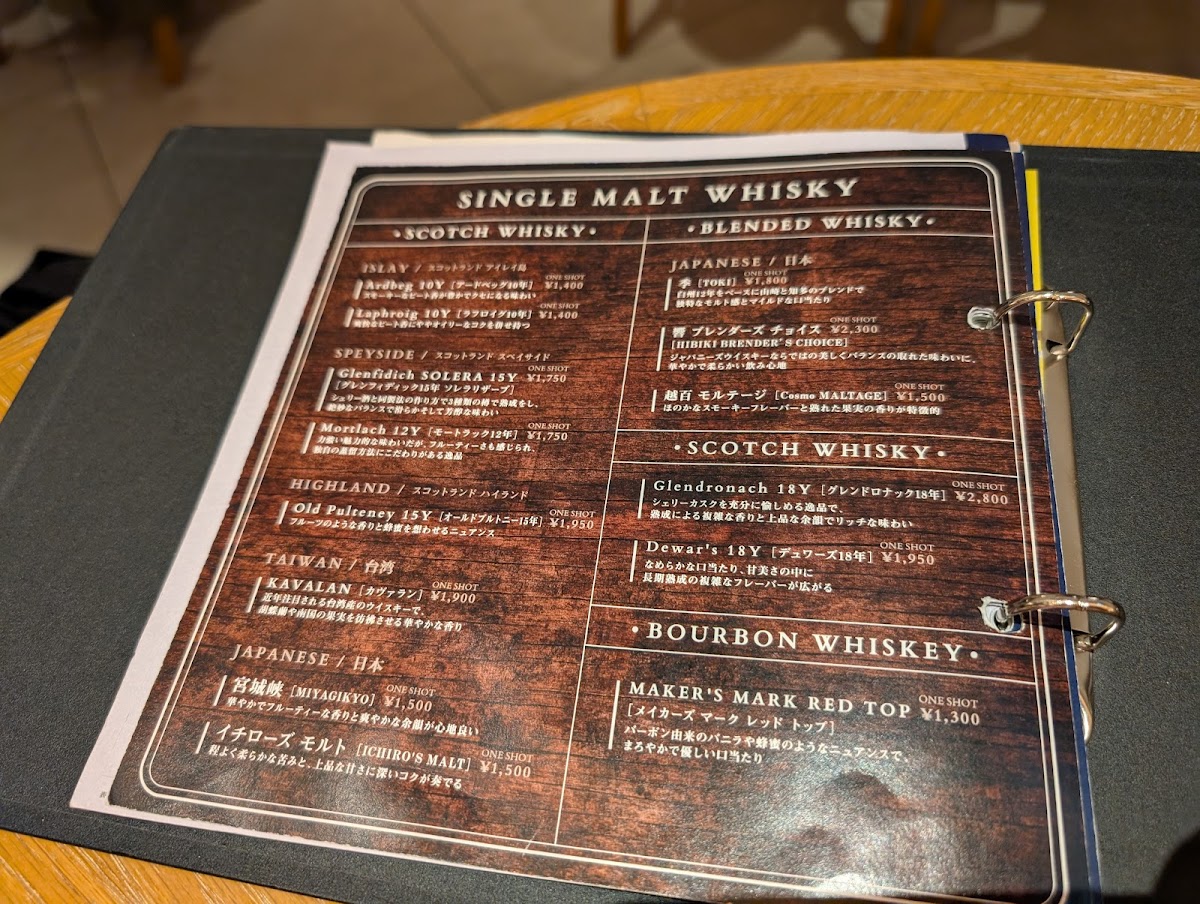 SINGLE MALT WHISKY
・SCOTCH WHISKY・
ISLAY / スコットランド アイレイ島
ONE SHOT
Ardbeg 10Y [アードベッグ10年] ¥1,400
スモーキーなピート香が豊かでクセになる味わい
ONE SHOT
Laphroig 10Y [ラフロイグ10年] ¥1,400
爽快なピート香にややオイリーなコクを併せ持つ
SPEYSIDE / スコットランド スペイサイド
ONE SHOT
Glenfidich SOLERA 15Y ¥1,750
[グレンフィディック15年 ソレラリザーブ]
シェリー酒と同製法の作り方で3種類の樽で熟成をし、
絶妙なバランスで滑らかそして芳醇な味わい
ONE SHOT
Mortlach 12Y [モートラック12年] ¥1,750
力強い魅力的な味わいだが、フルーティーさも感じられ、
独自の蒸留方法にこだわりがある逸品
HIGHLAND / スコットランド ハイランド
ONE SHOT
Old Pulteney 15Y [オールドプルトニー15年] ¥1,950
フルーツのような香りと蜂蜜を想わせるニュアンス
TAIWAN / 台湾
ONE SHOT
KAVALAN [カヴァラン] ¥1,900
近年注目される台湾産のウイスキーで、
胡蝶蘭や南国の果実を彷彿させる華やかな香り
JAPANESE / 日本
ONE SHOT
宮城峡 [MIYAGIKYO] ¥1,500
華やかでフルーティーな香りと爽やかな余韻が心地良い
ONE SHOT
イチローズ モルト [ICHIRO'S MALT] ¥1,500
程よく柔らかな苦みと、上品な甘さに深いコクが奏でる
・BLENDED WHISKY・
JAPANESE / 日本
ONE SHOT
季 [TOKI] ¥1,800
白州12年をベースに山崎と知多のブレンドで
独特なモルト感とマイルドな口当たり
ONE SHOT
響 ブレンダーズ チョイス ¥2,300
[HIBIKI BRENDER'S CHOICE]
ジャパニーズウイスキーならではの美しくバランスの取れた味わいに、
華やかで柔らかい飲み心地
ONE SHOT
越百 モルテージ [Cosmo MALTAGE] ¥1,500
ほのかなスモーキーフレーバーと熟れた果実の香りが特徴的
・SCOTCH WHISKY・
ONE SHOT
Glendronach 18Y [グレンドロナック18年] ¥2,800
シェリーカスクを充分に愉しめる逸品で、
熟成による複雑な香りと上品な余韻でリッチな味わい
ONE SHOT
Dewar's 18Y [デュワーズ18年] ¥1,950
なめらかな口当たり、甘美さの中に
長期熟成の複雑なフレーバーが広がる
・BOURBON WHISKEY・
ONE SHOT
MAKER'S MARK RED TOP ¥1,300
[メイカーズ マーク レッド トップ]
バーボン由来のバニラや蜂蜜のようなニュアンスで、
まろやかで優しい口当たり